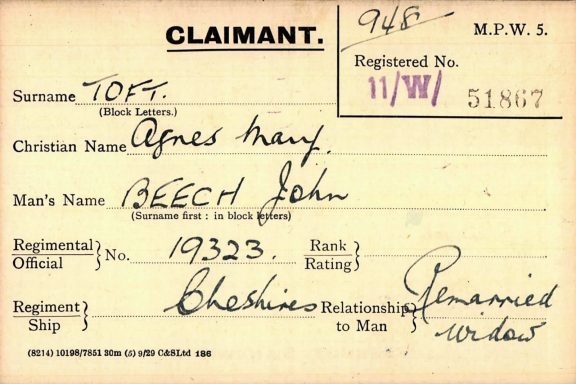 948
M.P.W. 5.
CLAIMANT.
Registered No.
11/W/ 51867
Surname TOFT.
(Block Letters.)
Christian Name Agnes Mary.
Man's Name BEECH John
(Surname first : in block letters)
Regimental
Official } No. 19323. Rank
Rating }
Regiment
Ship } Cheshires Relationship
to Man } Remarried
widow
(8214) 10198/7851 30m (5) 9/29 C&SLtd 186